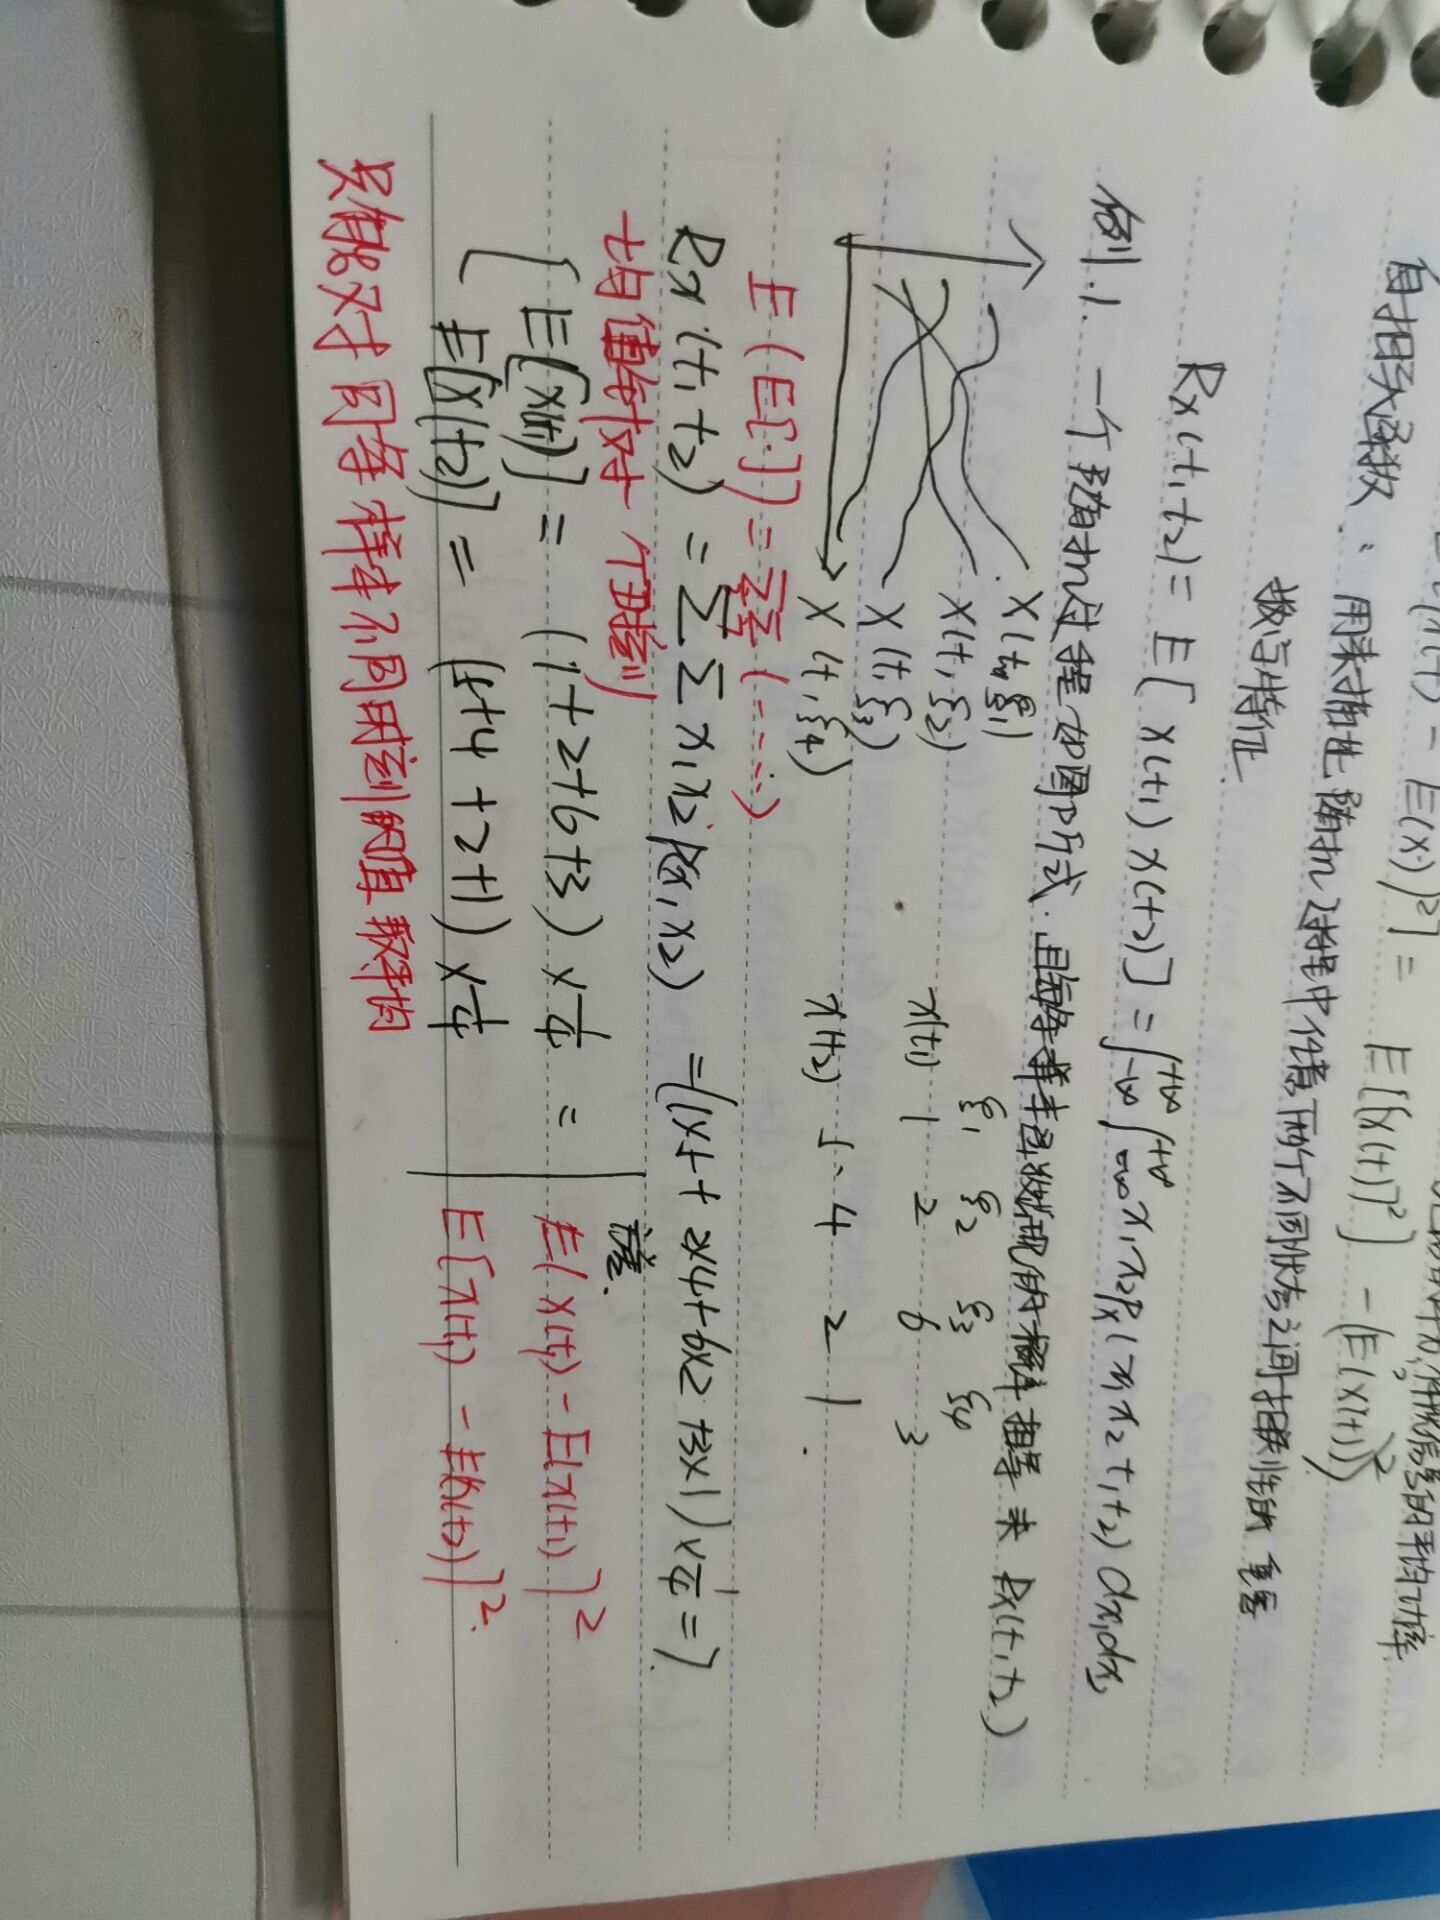 E(x) )²] = E[(x(t))²] - (E(x(t)))²
的平均功率.
自相关函数: 用来描述随机过程中任意两个不同状态之间相关性的重要
数字特征.
Rx(t₁t₂) = E[ x(t₁) x(t₂)] = ∫₋∞⁺∞ ∫₋∞⁺∞ x₁x₂Px(x₁x₂t₁t₂) dx₁dx₂
例.1. 一个随机过程如图所式. 且每条样本函数出现的概率相等 求 Rx(t₁t₂)
X(t,ξ₁)
X(t,ξ₂)
X(t,ξ₃)
X(t,ξ₄)
ξ₁ ξ₂ ξ₃ ξ₄
x(t₁) 1 2 6 3
x(t₂) 5 4 2 1.
E(E[·]) = ΣΣ(-----)
Rx(t₁t₂) = ΣΣ x₁x₂P(x₁x₂) = (1×5+2×4+6×2+3×1)×1/4 = 7.
均值针对一个时刻
E[x(t₁)] = (1+2+6+3)×1/4 =
E[x(t₂)] = (5+4+2+1)×1/4
方差.
E(x(t₁)-E(x(t₁)]²
E[x(t₁)-E(x(t₂)]².
只能对同条样本不同时刻的值取平均